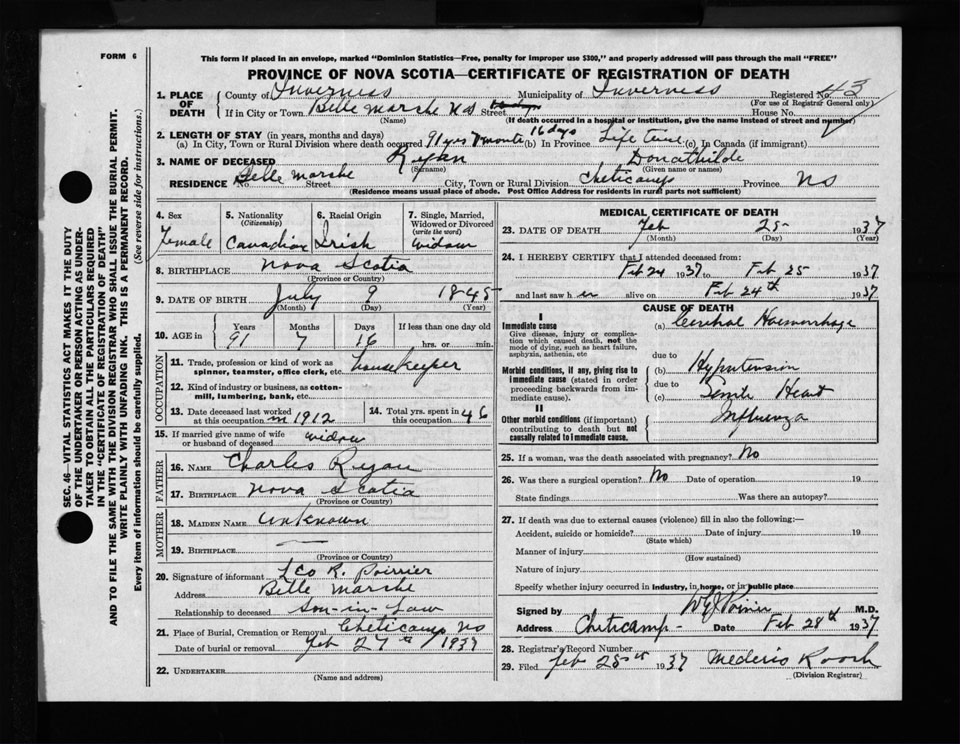 FORM 6
This form if placed in an envelope, marked "Dominion Statistics—Free, penalty for improper use $300," and properly addressed will pass through the mail "FREE"
PROVINCE OF NOVA SCOTIA—CERTIFICATE OF REGISTRATION OF DEATH
SEC. 46—VITAL STATISTICS ACT MAKES IT THE DUTY
OF THE UNDERTAKER OR PERSON ACTING AS UNDER-
TAKER TO OBTAIN ALL THE PARTICULARS REQUIRED
IN THE "CERTIFICATE OF REGISTRATION OF DEATH"
AND TO FILE THE SAME WITH THE DIVISION REGISTRAR WHO SHALL ISSUE THE BURIAL PERMIT.
WRITE PLAINLY WITH UNFADING INK. THIS IS A PERMANENT RECORD.
Every item of information should be carefully supplied. (See reverse side for instructions.)
1. PLACE OF DEATH County of Inverness Municipality of Inverness Registered No. 43
(For use of Registrar General only)
If in City or Town Belle Marshe NS Street House No.
(Name) (If death occurred in a hospital or institution, give the name instead of street and number)
2. LENGTH OF STAY (in years, months and days)
(a) In City, Town or Rural Division where death occurred 91 yrs 7 months 16 days (b) In Province Life time (c) In Canada (if immigrant)
3. NAME OF DECEASED Ryan Donathilde
(Surname) (Given name or names)
RESIDENCE Belle Marshe Street City, Town or Rural Division Cheticamp Province NS
(Residence means usual place of abode. Post Office Address for residents in rural parts not sufficient)
4. Sex Female
5. Nationality (Citizenship) Canadian
6. Racial Origin Irish
7. Single, Married, Widowed or Divorced (write the word) widow
8. BIRTHPLACE Nova Scotia
(Province or Country)
9. DATE OF BIRTH July 9 1845
(Month) (Day) (Year)
10. AGE in Years 91 Months 7 Days 16 If less than one day old hrs. or min.
OCCUPATION
11. Trade, profession or kind of work as spinner, teamster, office clerk, etc. housekeeper
12. Kind of industry or business, as cotton-mill, lumbering, bank, etc.
13. Date deceased last worked at this occupation in 1912
14. Total yrs. spent in this occupation 46
15. If married give name of wife or husband of deceased widow
FATHER
16. NAME Charles Ryan
17. BIRTHPLACE Nova Scotia
(Province or Country)
MOTHER
18. MAIDEN NAME unknown
19. BIRTHPLACE —
(Province or Country)
20. Signature of informant Leo R. Poirrier
Address Belle Marshe
Relationship to deceased Son-in-Law
21. Place of Burial, Cremation or Removal Cheticamp NS
Date of burial or removal Feb 27th 1937
22. UNDERTAKER
(Name and address)
MEDICAL CERTIFICATE OF DEATH
23. DATE OF DEATH Feb 25 1937
(Month) (Day) (Year)
24. I HEREBY CERTIFY that I attended deceased from:
Feb 24 1937 to Feb 25 1937
and last saw her alive on Feb 24th 1937
CAUSE OF DEATH
I
Immediate cause
Give disease, injury or complication which caused death, not the mode of dying, such as heart failure, asphyxia, asthenia, etc
(a) Cerebral Haemorrhage
due to
Morbid conditions, if any, giving rise to immediate cause (stated in order proceeding backwards from immediate cause).
(b) Hypertension
due to
(c) Senile Heart
II
Other morbid conditions (if important) contributing to death but not causally related to immediate cause.
Influenza
25. If a woman, was the death associated with pregnancy? No
26. Was there a surgical operation? No Date of operation 19
State findings Was there an autopsy?
27. If death was due to external causes (violence) fill in also the following:—
Accident, suicide or homicide? Date of injury 19
(State which)
Manner of injury
(How sustained)
Nature of injury
Specify whether injury occurred in industry, in home, or in public place
Signed by Poirier M.D.
Address Cheticamp - Date Feb 28th 1937
28. Registrar's Record Number
29. Filed Feb 28th 1937 Mederis Roach
(Division Registrar)